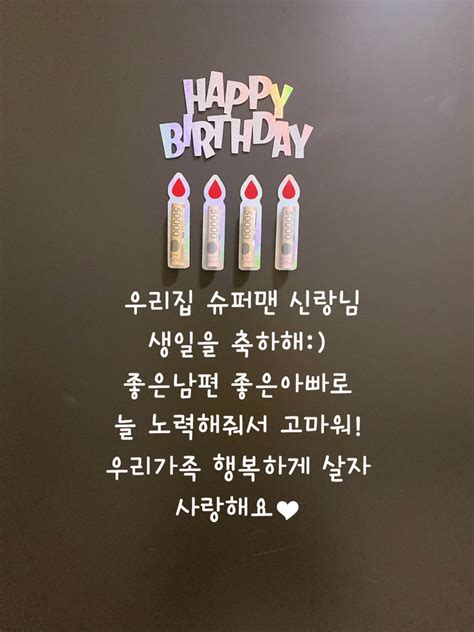 HAPPY
BIRTHDAY
50000 50000 50000 50000
우리집 슈퍼맨 신랑님
생일을 축하해:)
좋은남편 좋은아빠로
늘 노력해줘서 고마워!
우리가족 행복하게 살자
사랑해요♥